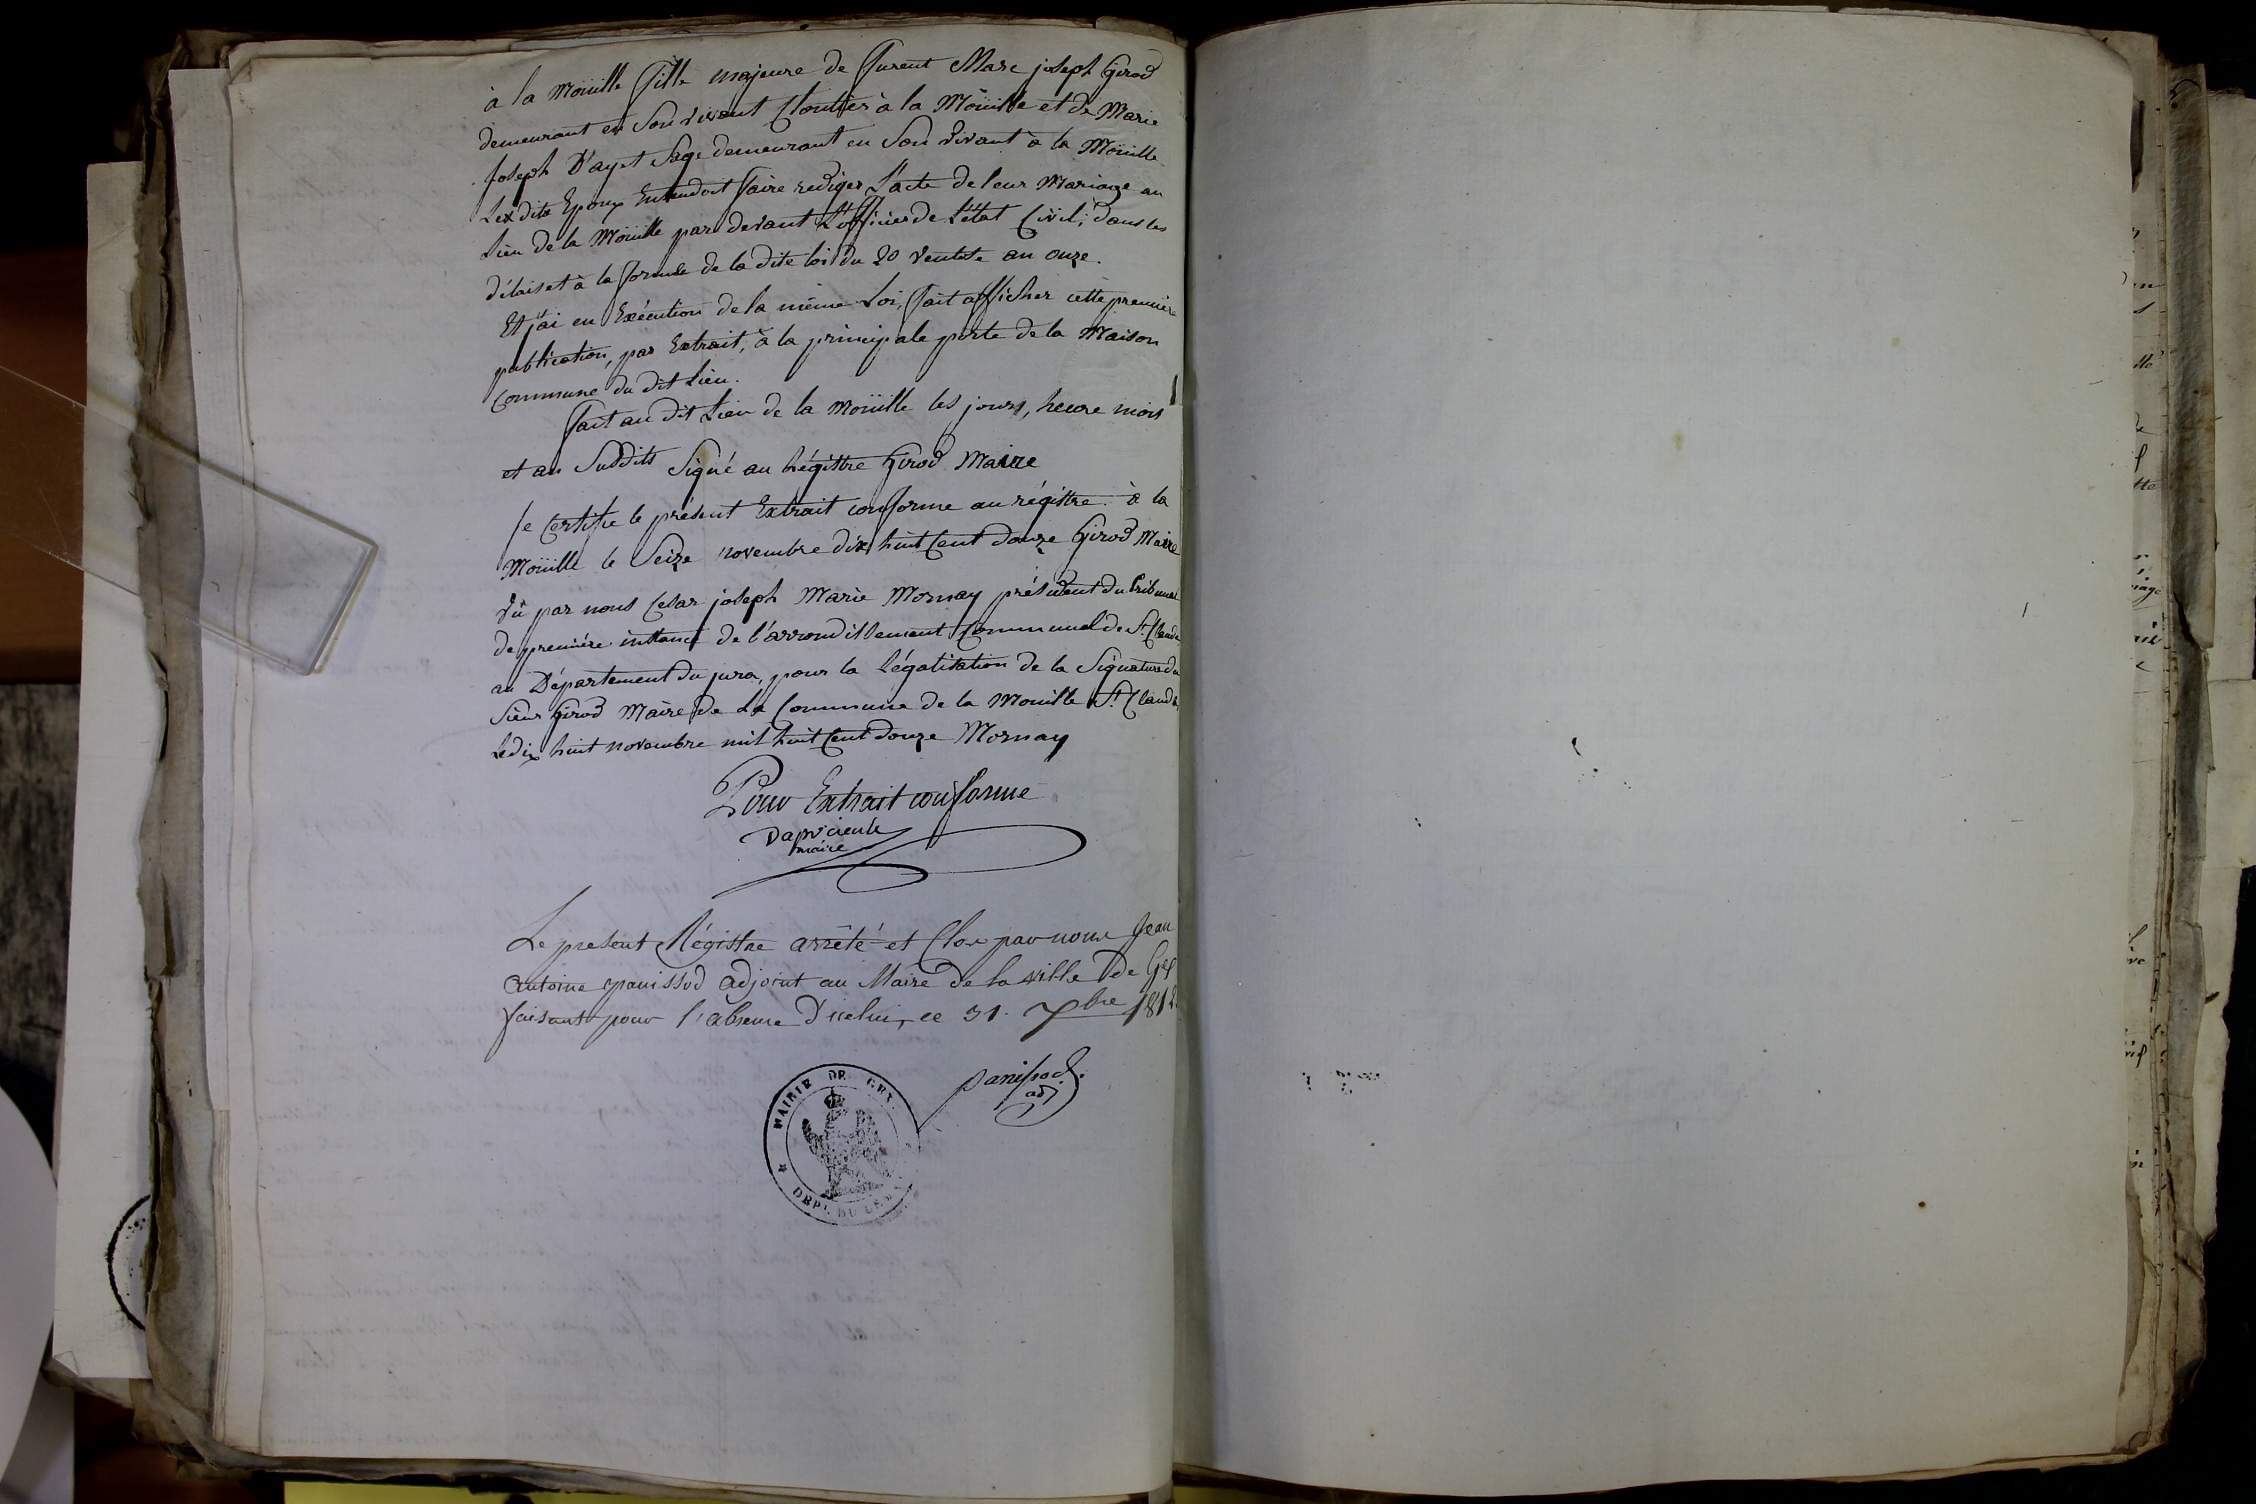 à la Moüille fille majeure de furent Marc joseph Girod
demeurant en son vivant Cloutier à la Moüille et de Marie
Joseph D'ayet Sage demeurant en Son vivant à la Moüille
Lesdits Epoux Entendoit faire rediger L'acte de leur Mariage au
Lieu de la Moüille par devant L'officier de L'état Civil, dans les
délais et à la formule de la dite loi du 20 Ventôse an onze.
Et j'ai en Exécution de la même Loi, fait afficher cette première
publication, par Extrait, à la principale porte de la Maison
Commune du dit Lieu.
fait au dit Lieu de la Moüille les jours, heure mois
et an Susdits Signé au Régistre Girod Maire
Je Certifie le présent Extrait conforme au régistre à la
Moüille le Seize novembre dix huit Cent douze Girod Maire
Vû par nous Cesar joseph Marie Mornay président du tribunal
de première instance de l'arrondissement Communal de St. Claude
au Département du jura, pour la Légalisation de la Signature du
Sieur Girod Maire de La Commune de la Mouille St. Claude,
Le dix huit novembre mil huit Cent douze Mornay
Pour Extrait conforme
maire
Le present Régistre arrêté et Clos par nous Jean
antoine panissod adjoint au Maire de la ville de Gex
faisant pour l'absence d'icelui, ce 31. Xbre 1812
Panissod.
adj
MAIRIE DE GEX.
DEPT. DU LÉMAN